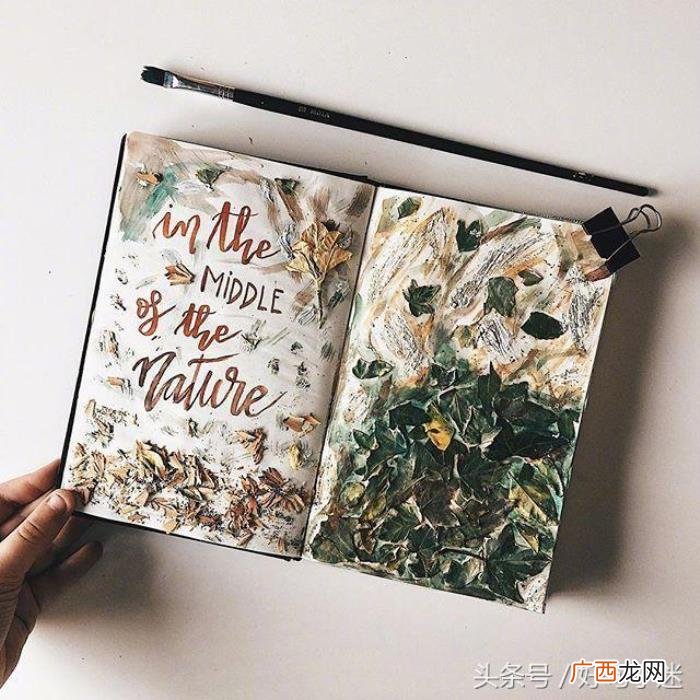 in the
MiDDLE
of the
Nature
头条号 / 好
迷
广西龙网